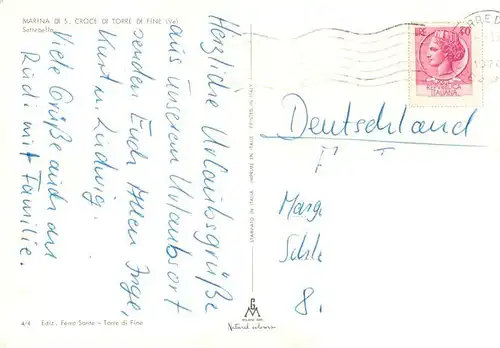 MARINA DI S. CROCE DI TORRE DI FINE (Ve)
Herzliche Urlaubsgrüße
aus unserem Urlaubsort
senden Euch Allen Inge,
Kurt u. Ludwig.
Viele Grüße auch an
Rudi mit Familie.
4/4 Ediz. Ferro Sante - Torre di Fine
STAMPATO IN ITALIA IMPRIMÉ EN ITALIE PRINTED IN ITALY
MILANO
LIRE 40
REPVBBLICA
ITALIANA
Deutschland
Marg
Schle
8.